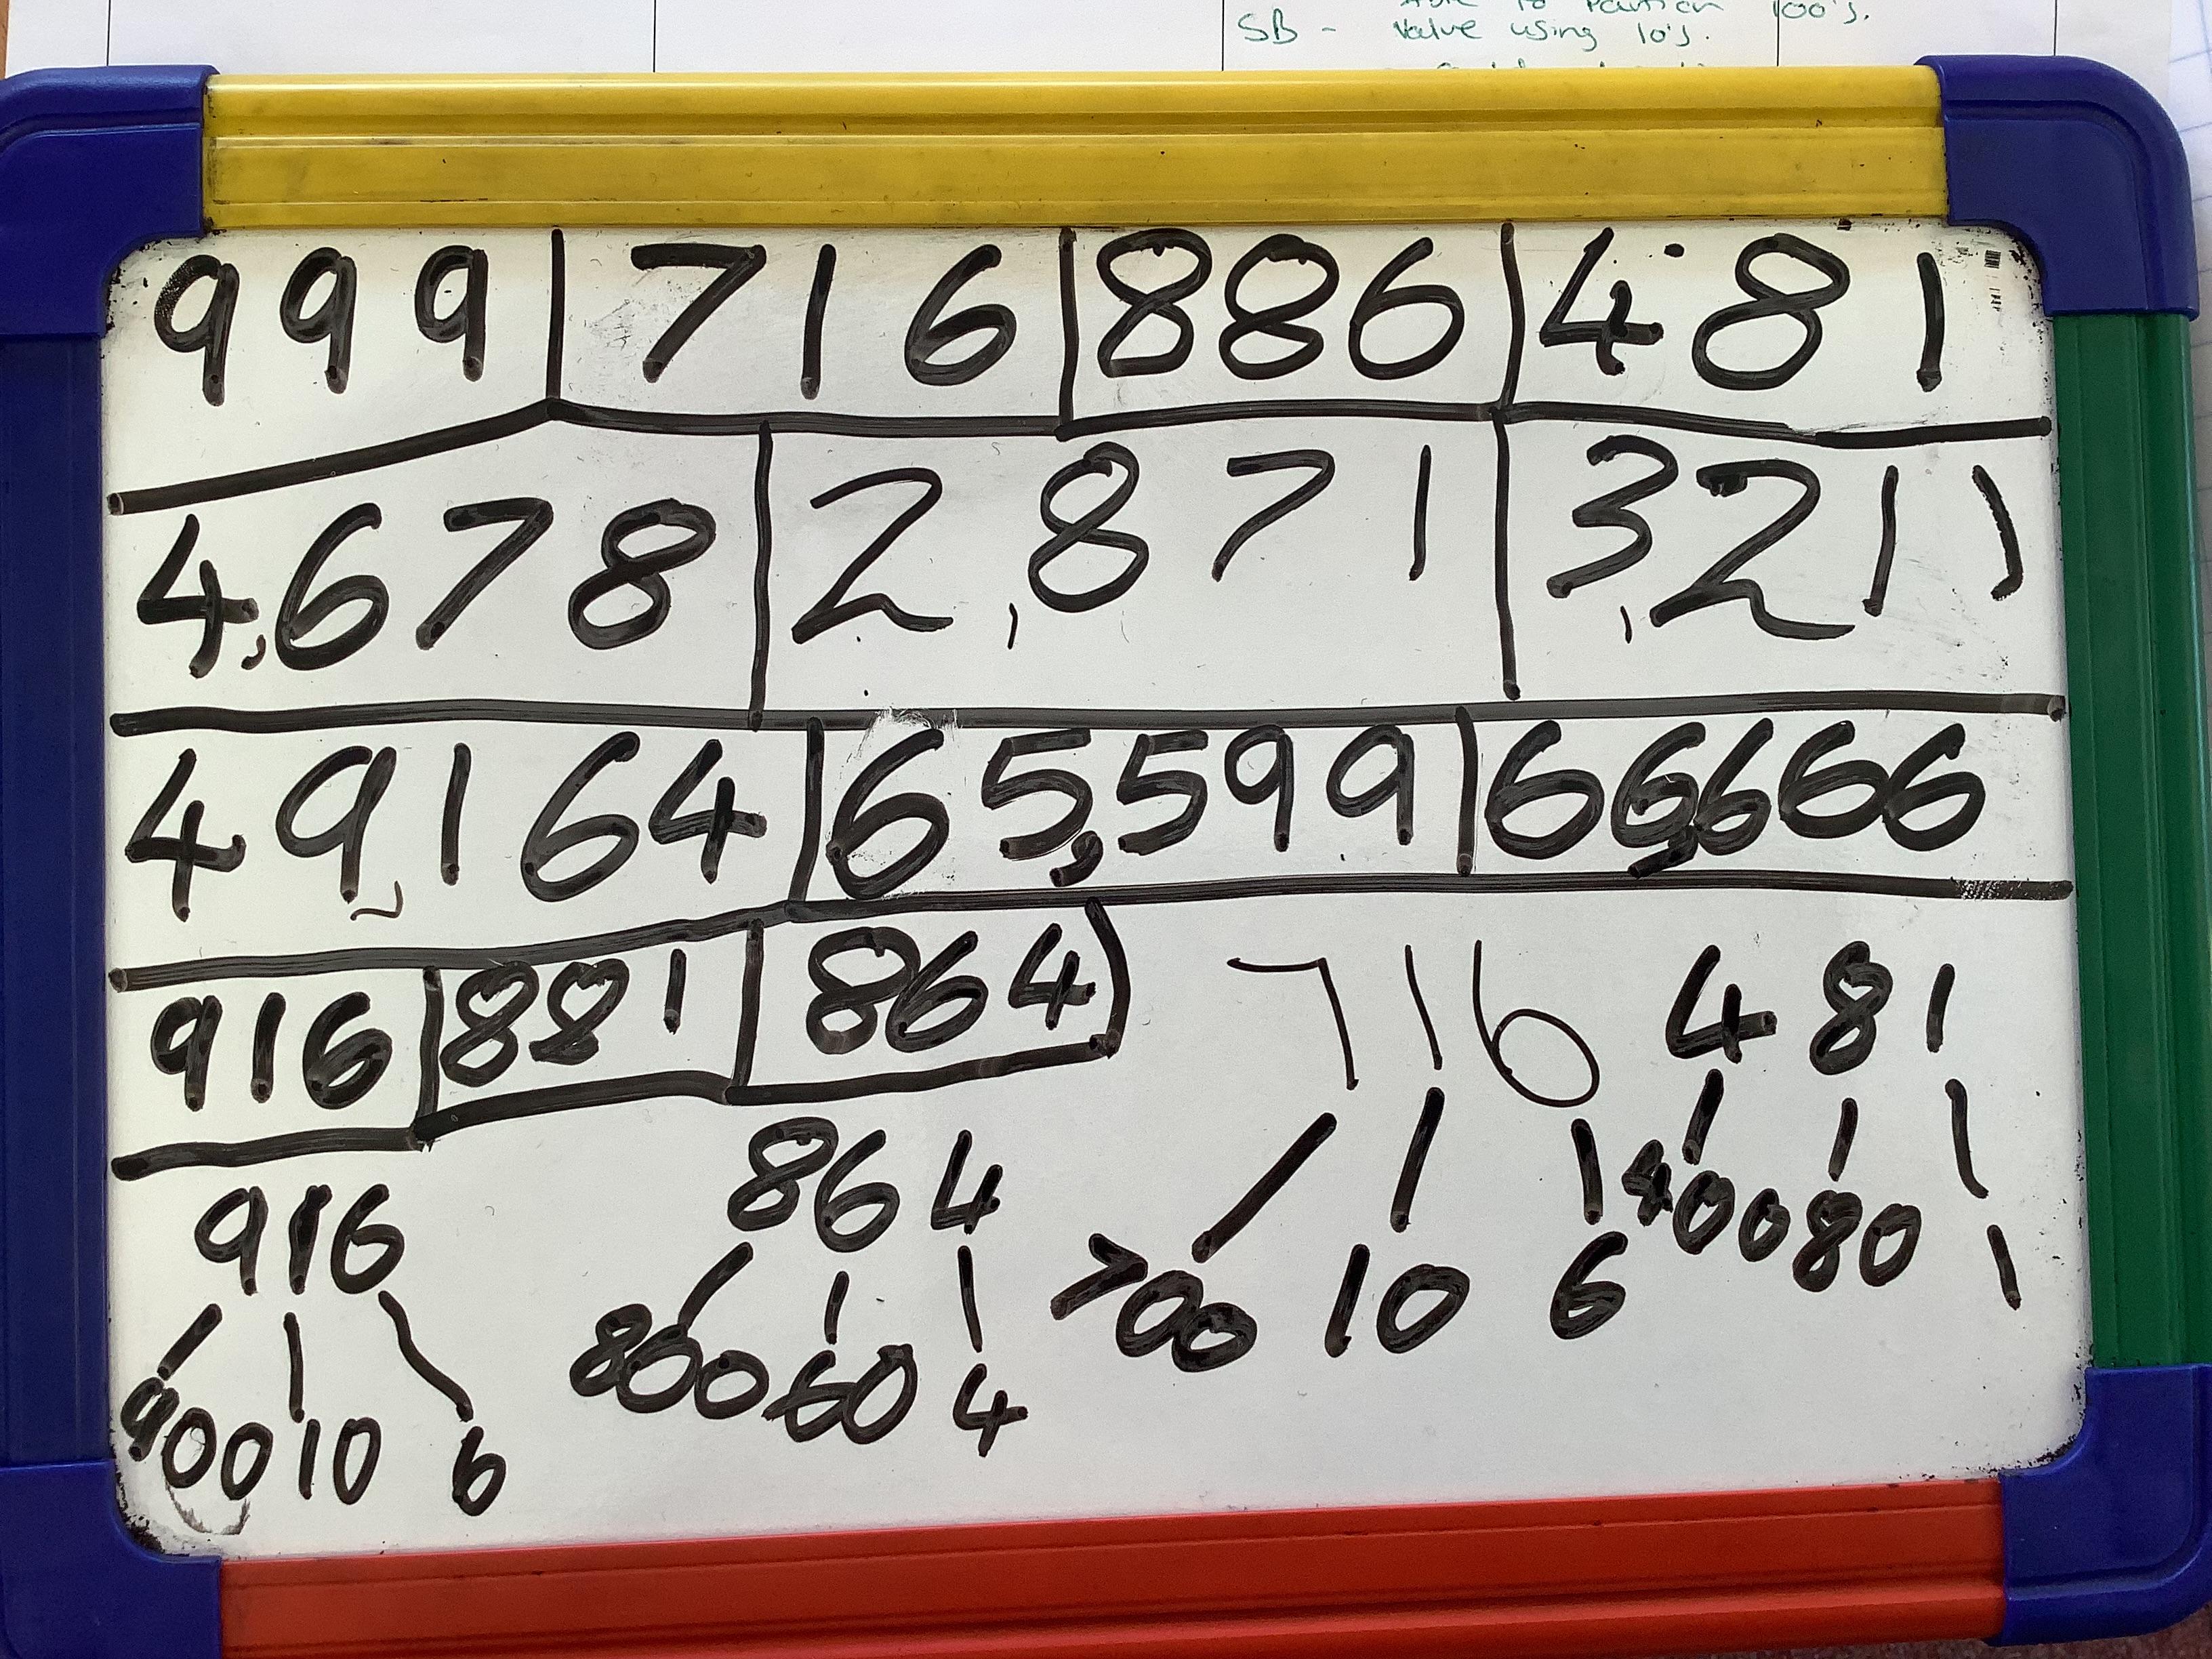 SB - Able to partition 100's.
value using 10's.
999 716 886 481
4,678 2,871 3,211
49,164 65,599 66,666
916 881 864 716 481
916 864 700 10 6 400 80 1
900 10 6 800 60 4